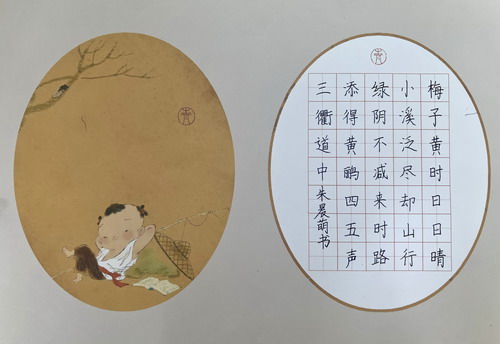 梅子黄时日日晴
小溪泛尽却山行
绿阴不减来时路
添得黄鹂四五声
三衢道中 朱晨萌书